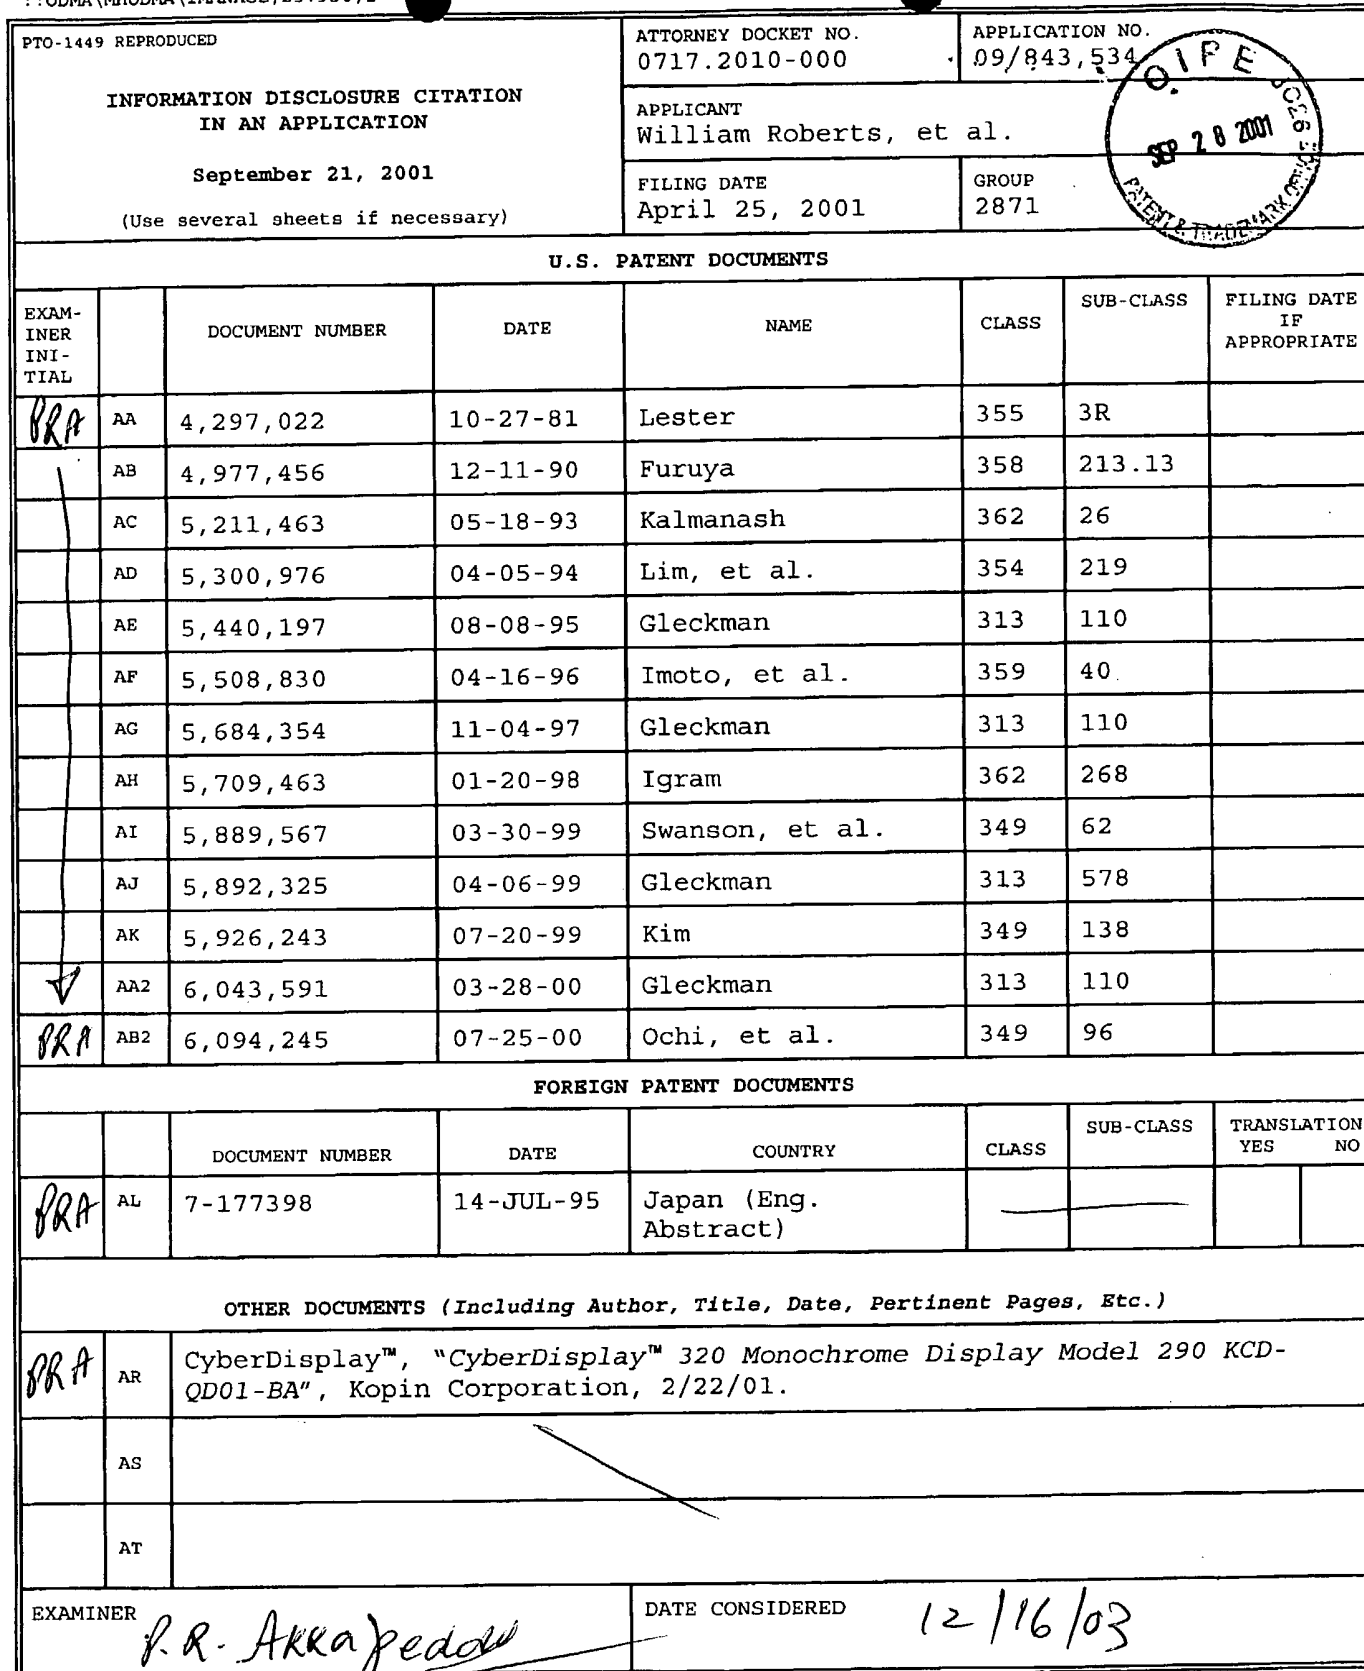 PTO-1449 REPRODUCED
INFORMATION DISCLOSURE CITATION
IN AN APPLICATION
September 21, 2001
(Use several sheets if necessary)
ATTORNEY DOCKET NO.
0717.2010-000
APPLICATION NO.
09/843,534
APPLICANT
William Roberts, et al.
FILING DATE
April 25, 2001
GROUP
2871
OIPE
SEP 28 2001
PATENT & TRADEMARK OFFICE
U.S. PATENT DOCUMENTS
EXAM-
INER
INI-
TIAL
DOCUMENT NUMBER DATE NAME CLASS SUB-CLASS FILING DATE
IF
APPROPRIATE
PRA AA 4,297,022 10-27-81 Lester 355 3R
AB 4,977,456 12-11-90 Furuya 358 213.13
AC 5,211,463 05-18-93 Kalmanash 362 26
AD 5,300,976 04-05-94 Lim, et al. 354 219
AE 5,440,197 08-08-95 Gleckman 313 110
AF 5,508,830 04-16-96 Imoto, et al. 359 40
AG 5,684,354 11-04-97 Gleckman 313 110
AH 5,709,463 01-20-98 Igram 362 268
AI 5,889,567 03-30-99 Swanson, et al. 349 62
AJ 5,892,325 04-06-99 Gleckman 313 578
AK 5,926,243 07-20-99 Kim 349 138
AA2 6,043,591 03-28-00 Gleckman 313 110
PRA AB2 6,094,245 07-25-00 Ochi, et al. 349 96
FOREIGN PATENT DOCUMENTS
DOCUMENT NUMBER DATE COUNTRY CLASS SUB-CLASS TRANSLATION
YES NO
PRA AL 7-177398 14-JUL-95 Japan (Eng.
Abstract)
OTHER DOCUMENTS (Including Author, Title, Date, Pertinent Pages, Etc.)
PRA AR CyberDisplay™, "CyberDisplay™ 320 Monochrome Display Model 290 KCD-
QD01-BA", Kopin Corporation, 2/22/01.
AS
AT
EXAMINER P.R. Akkapeddi
DATE CONSIDERED 12/16/03